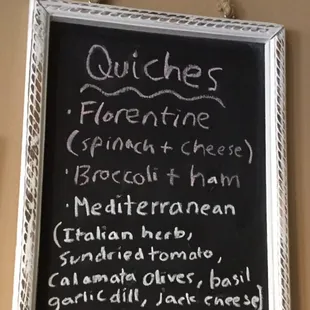 Quiches
· Florentine
(spinach + cheese)
· Broccoli + ham
· Mediterranean
(Italian herb,
sundried tomato,
Calamata olives, basil
garlic dill, jack cheese)